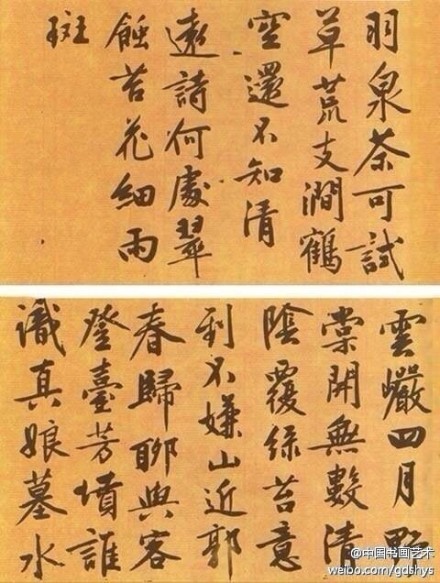 羽泉茶可試
草荒支澗鶴
空還不知清
遠詩何處翠
蝕苔花細雨
斑
雲巖四月野
棠開無數清
陰覆綠苔意
到不嫌山近郭
春歸聊與客
登臺芳墳誰
識真娘墓水
@中国书画艺术
weibo.com/gdshys